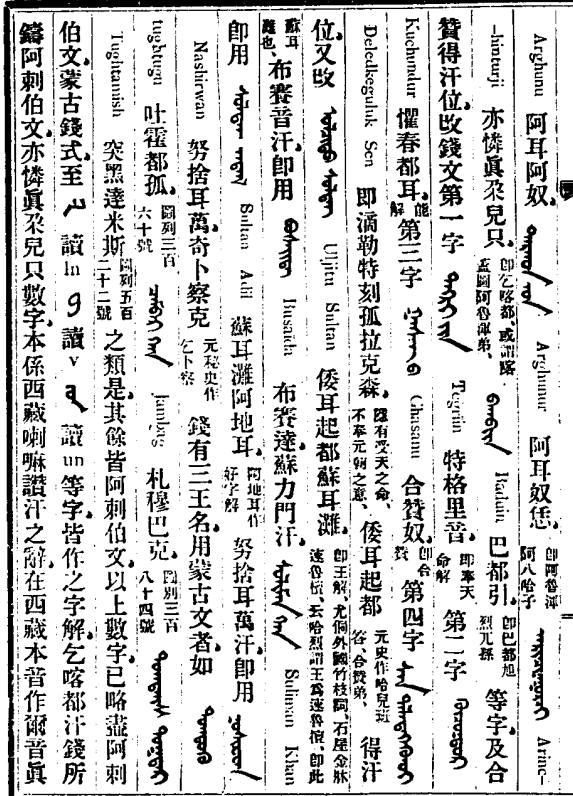 Arghunu 阿耳阿奴。 Arghunur 阿耳奴恁。 即阿魯渾阿八哈子 Arinc-
-hinturji 亦憐眞朶兒只。 即乞喀都、或謂喀蓋圖阿魯渾弟、 Baduin 巴都引。 即巴都旭烈兀孫 等字及合
贊得汗位改錢文第一字 Tegriin 特格里音。 即奉天命解 第二字
Kuchundur 懼春都耳。 能解 第三字 Ghasanu 合贊奴。 即合贊 第四字
Deledkeguluk Sen 即滴勒特刻孤拉克森。 隱有受天之命、不奉元朝之意、 倭耳起都 元史作哈兒班答、合贊弟、 得汗
位。又改 Uljitu Sultan 倭耳起都蘇耳灘。 即王解、尤侗外國竹枝詞、石屋金牀速魯檀、云哈烈謂王爲速魯檀、即此
蘇耳灘也、 布賽音汗。即用 布賽達蘇力門汗。 Suliman Khan
即用 Sultan Adil 蘇耳灘阿地耳。 阿地耳作好字解 努捨耳萬汗。即用
Nashirwan 努捨耳萬。奇卜察克 元秘史作乞卜察 錢有三王名用蒙古文者。如
tughtugu 吐霍都孤。 圖列三百六十號 札穆巴克。 圖列三百八十四號
Tughtamish 突黑達米斯 圖列五百二十二號 之類是。其餘皆阿剌伯文。以上數字。已略盡阿剌
伯文。蒙古錢式。至 讀 ln 讀 v 讀 un 等字。皆作之字解。乞喀都汗錢所
鑄阿剌伯文。亦憐眞朶兒只數字。本係西藏喇嘛讚汗之辭。在西藏本音作爾音眞